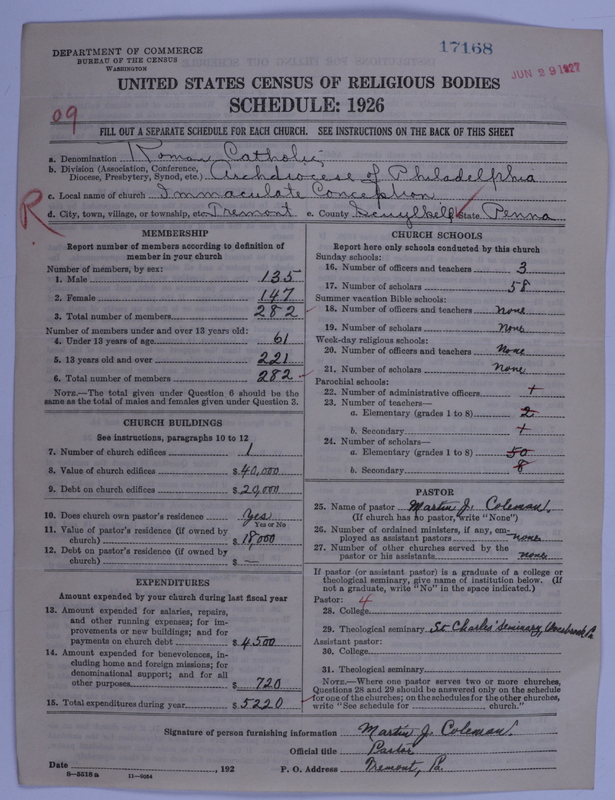 17168
DEPARTMENT OF COMMERCE
BUREAU OF THE CENSUS
WASHINGTON
JUN 29 1927
UNITED STATES CENSUS OF RELIGIOUS BODIES
SCHEDULE: 1926
09
FILL OUT A SEPARATE SCHEDULE FOR EACH CHURCH. SEE INSTRUCTIONS ON THE BACK OF THIS SHEET
a. Denomination Roman Catholic
b. Division (Association, Conference, Diocese, Presbytery, Synod, etc.) Archdiocese of Philadelphia
c. Local name of church Immaculate Conception
R
d. City, town, village, or township, etc. Tremont e. County Scuylkill State Penna
MEMBERSHIP
Report number of members according to definition of
member in your church
Number of members, by sex:
1. Male 135
2. Female 147
3. Total number of members 282
Number of members under and over 13 years old:
4. Under 13 years of age 61
5. 13 years old and over 221
6. Total number of members 282
NOTE.—The total given under Question 6 should be the
same as the total of males and females given under Question 3.
CHURCH BUILDINGS
See instructions, paragraphs 10 to 12
7. Number of church edifices 1
8. Value of church edifices $ 40,000
9. Debt on church edifices $ 20,000
10. Does church own pastor's residence Yes
Yes or No
11. Value of pastor's residence (if owned by
church) $ 18,000
12. Debt on pastor's residence (if owned by
church) $ —
EXPENDITURES
Amount expended by your church during last fiscal year
13. Amount expended for salaries, repairs,
and other running expenses; for im-
provements or new buildings; and for
payments on church debt $ 4500
14. Amount expended for benevolences, in-
cluding home and foreign missions; for
denominational support; and for all
other purposes $ 720
15. Total expenditures during year $ 5220
CHURCH SCHOOLS
Report here only schools conducted by this church
Sunday schools:
16. Number of officers and teachers 3
17. Number of scholars 58
Summer vacation Bible schools:
18. Number of officers and teachers none
19. Number of scholars none
Week-day religious schools:
20. Number of officers and teachers none
21. Number of scholars none
Parochial schools:
22. Number of administrative officers
23. Number of teachers—
a. Elementary (grades 1 to 8) 2
b. Secondary
24. Number of scholars—
a. Elementary (grades 1 to 8) 50
b. Secondary 8
PASTOR
25. Name of pastor Martin J. Coleman.
(If church has no pastor, write "None")
26. Number of ordained ministers, if any, em-
ployed as assistant pastors none
27. Number of other churches served by the
pastor or his assistants none
If pastor (or assistant pastor) is a graduate of a college or
theological seminary, give name of institution below. (If
not a graduate, write "No" in the space indicated.)
Pastor: 4
28. College
29. Theological seminary St Charles' Seminary, Overbrook Pa
Assistant pastor:
30. College
31. Theological seminary
NOTE.—Where one pastor serves two or more churches,
Questions 28 and 29 should be answered only on the schedule
for one of the churches; on the schedules for the other churches,
write "See schedule for church."
Signature of person furnishing information Martin J. Coleman.
Official title Pastor
Date , 192 P. O. Address Tremont, Pa.
8-5518a 11-9054